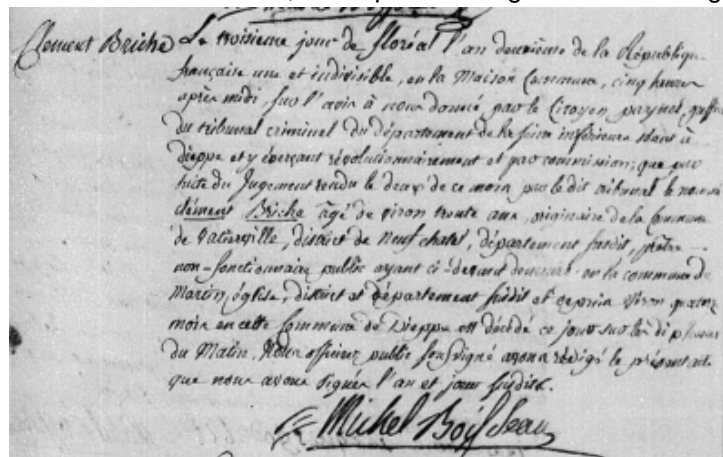 Clement Briche
Le troisieme jour de floréal l'an deuxieme de la République
française une et indivisible, en la Maison Commune, cinq heures
après midi, sur l'avis à nous donné par le Citoyen greffier
du tribunal criminel du département de la seine inférieure séant à
dieppe et y exerçant révolutionnairement et par commission; que par
suite du Jugement rendu le deux de ce mois par le dit tribunal le nommé
clément Briche âgé de viron trente ans, originaire de la Commune
de Vatierville, district de Neufchatel, département susdit, prêtre
non-fonctionnaire public ayant ci-devant demeuré en la commune de
Martin église, district et département susdit et depuis viron quatre
mois en cette Commune de Dieppe est décédé ce jour sur les di
du Matin, Nous officier public soussigné avons rédigé le présent acte
que nous avons signé l'an et jour susdits.
Michel Boisdeau